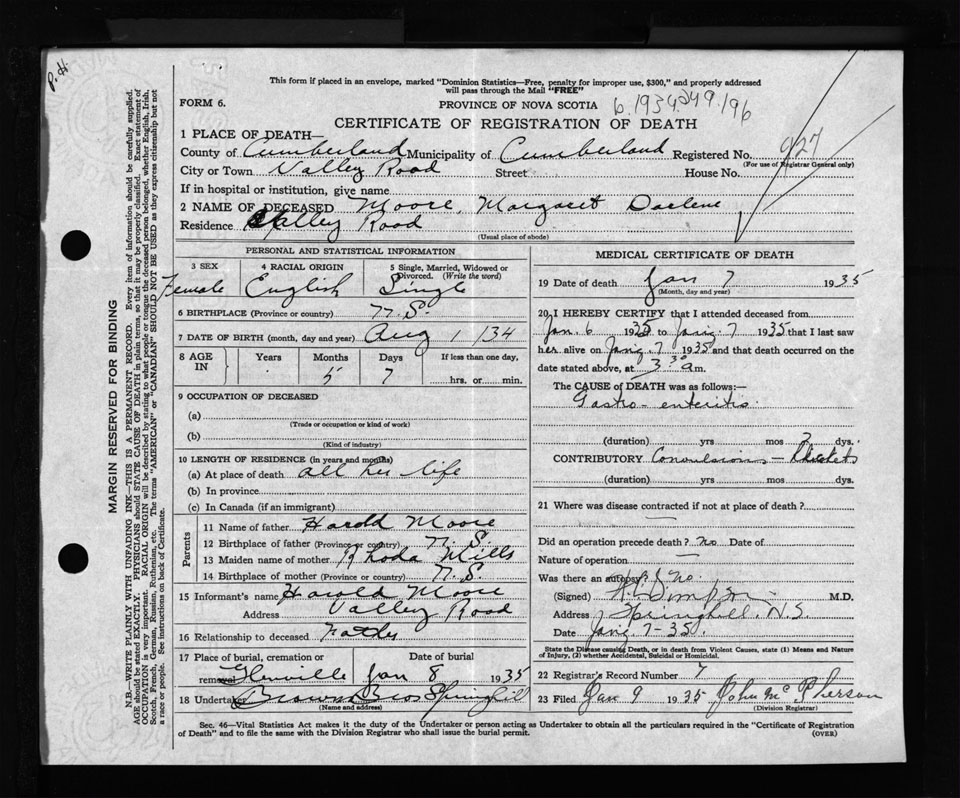 P. H.
This form if placed in an envelope, marked "Dominion Statistics—Free, penalty for improper use, $300," and properly addressed
will pass through the Mail "FREE"
FORM 6.
PROVINCE OF NOVA SCOTIA
6.1934249.196
CERTIFICATE OF REGISTRATION OF DEATH
1 PLACE OF DEATH—
County of Cumberland Municipality of Cumberland Registered No. 927
(For use of Registrar General only)
City or Town Valley Road Street House No.
If in hospital or institution, give name
2 NAME OF DECEASED Moore, Margaret Darlene
Residence Valley Road
(Usual place of abode)
PERSONAL AND STATISTICAL INFORMATION
3 SEX 4 RACIAL ORIGIN 5 Single, Married, Widowed or
Divorced. (Write the word)
Female English Single
6 BIRTHPLACE (Province or country) N.S.
7 DATE OF BIRTH (month, day and year) Aug 1 / 34
8 AGE IN Years Months Days If less than one day,
5 7 hrs. or min.
9 OCCUPATION OF DECEASED
(a)
(Trade or occupation or kind of work)
(b)
(Kind of industry)
10 LENGTH OF RESIDENCE (in years and months)
(a) At place of death all her life
(b) In province
(c) In Canada (if an immigrant)
Parents
11 Name of father Harold Moore
12 Birthplace of father (Province or country) N.S.
13 Maiden name of mother Rhoda Mills
14 Birthplace of mother (Province or country) N.S.
15 Informant's name Harold Moore
Address Valley Road
16 Relationship to deceased Father
17 Place of burial, cremation or Date of burial
removal Glenville Jan 8 1935
18 Undertaker Brown Bros Springhill
(Name and address)
MEDICAL CERTIFICATE OF DEATH
19 Date of death Jan 7 1935
(Month, day and year)
20 I HEREBY CERTIFY that I attended deceased from
Jan. 6 1935 to Jany. 7 1935 that I last saw
her alive on Jany. 7 1935 and that death occurred on the
date stated above, at 3.30 a.m.
The CAUSE OF DEATH was as follows:—
Gastro-enteritis
(duration) yrs mos 2 dys.
CONTRIBUTORY Convulsions — Rickets
(duration) yrs mos dys.
21 Where was disease contracted if not at place of death?
—
Did an operation precede death? no Date of
Nature of operation —
Was there an autopsy? no.
(Signed) M.D.
Address Springhill, N.S.
Date Jany. 7-35.
State the Disease causing Death, or in death from Violent Causes, state (1) Means and Nature
of Injury, (2) whether Accidental, Suicidal or Homicidal.
22 Registrar's Record Number 7
23 Filed Jan 9 1935 John McPherson
(Division Registrar)
Sec. 46—Vital Statistics Act makes it the duty of the Undertaker or person acting as Undertaker to obtain all the particulars required in the "Certificate of Registration
of Death" and to file the same with the Division Registrar who shall issue the burial permit.
(OVER)
MARGIN RESERVED FOR BINDING
N.B.—WRITE PLAINLY WITH UNFADING INK—THIS IS A PERMANENT RECORD. Every item of information should be carefully supplied.
AGE should be stated EXACTLY. PHYSICIANS should STATE CAUSE OF DEATH in plain terms, so that it may be properly classified. Exact statement of
OCCUPATION is very important. RACIAL ORIGIN will be described by stating to what people or tongue the deceased person belonged, whether English, Irish,
Scotch, French, German, Russian, Ruthenian, etc. The terms "AMERICAN" or "CANADIAN" SHOULD NOT BE USED as they express citizenship but not
a race or people. See instructions on back of Certificate.